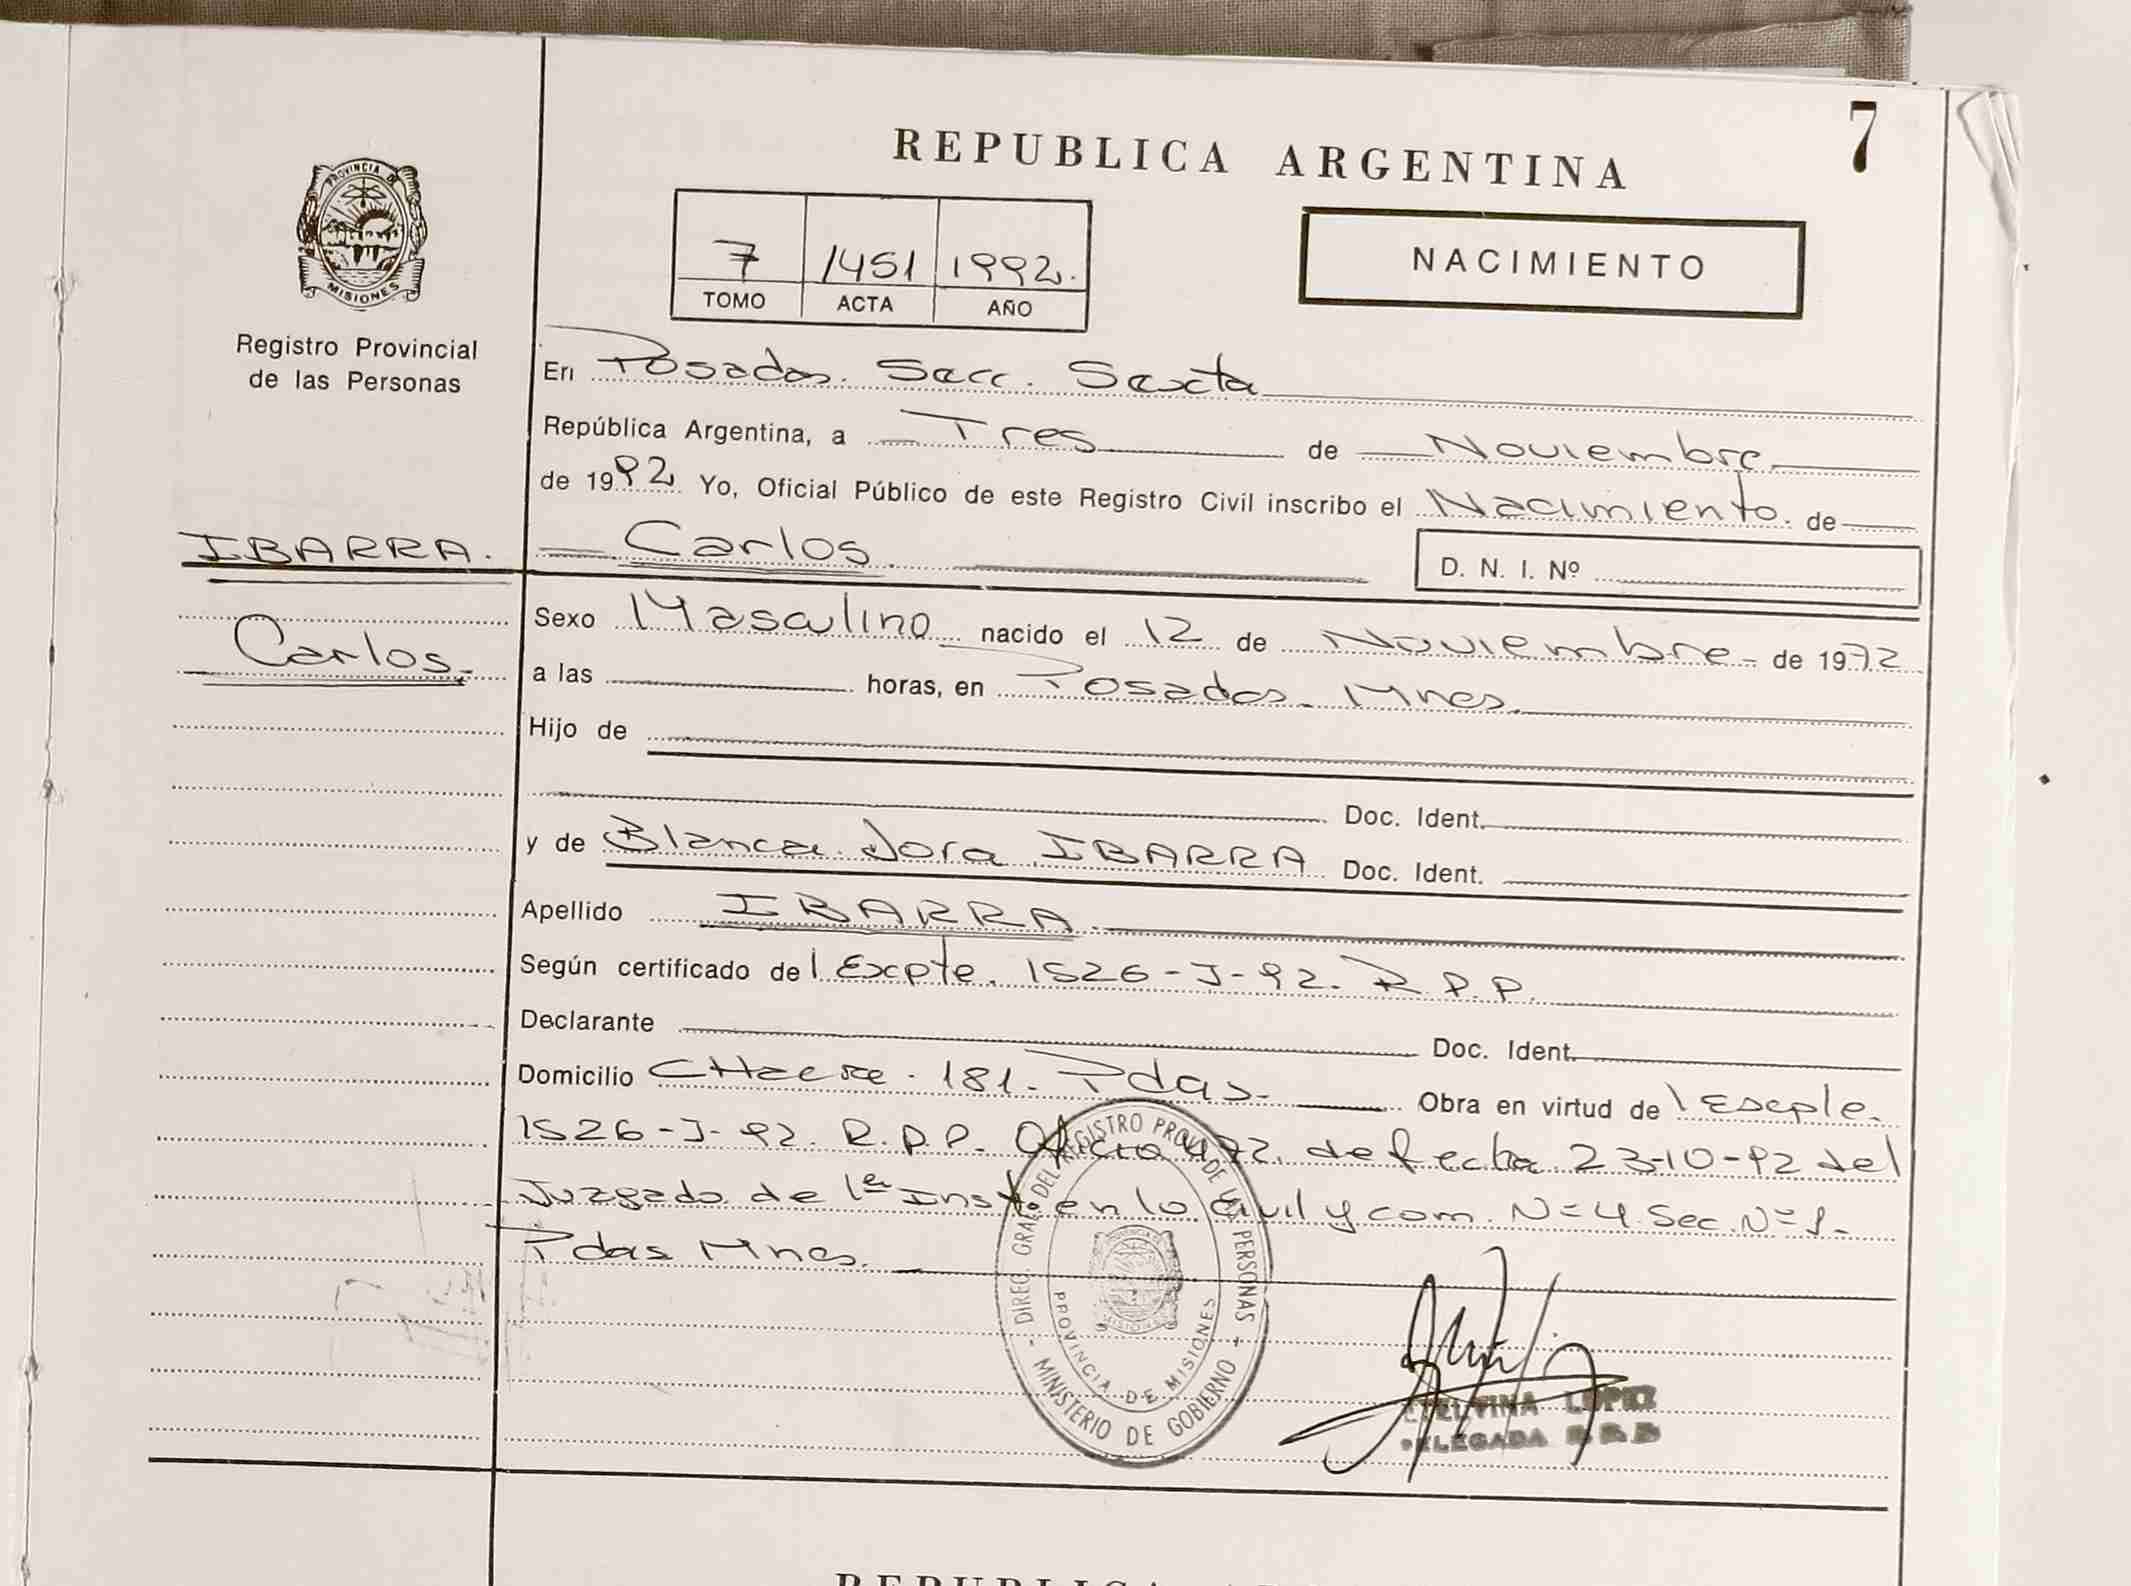 REPUBLICA ARGENTINA
7
PROVINCIA DE
MISIONES
Registro Provincial
de las Personas
7 1451 1992.
TOMO ACTA AÑO
NACIMIENTO
En Posadas. Secc. Sexta
República Argentina, a Tres de Noviembre
de 1992 Yo, Oficial Público de este Registro Civil inscribo el Nacimiento. de
IBARRA. Carlos.
D. N. I. Nº
Carlos.
Sexo Masculino nacido el 12 de Noviembre - de 1972
a las horas, en Posadas. Mnes.
Hijo de
Doc. Ident.
y de Blanca Dora IBARRA Doc. Ident.
Apellido IBARRA
Según certificado del Expte. 1526-J-92. R.P.P.
Declarante Doc. Ident.
Domicilio 181. Pdas. Obra en virtud del Expte.
1526-J-92. R.P.P. Oficio 472. de fecha 23-10-92 del
Juzgado de 1ª Inst. en lo Civil y com. Nº 4 Sec. Nº 1-
Pdas Mnes.
DIREC. GRAL. DEL REGISTRO PROV. DE LAS PERSONAS
MINISTERIO DE GOBIERNO
PROVINCIA DE MISIONES
MISIONES
LOPEZ
DELEGADA